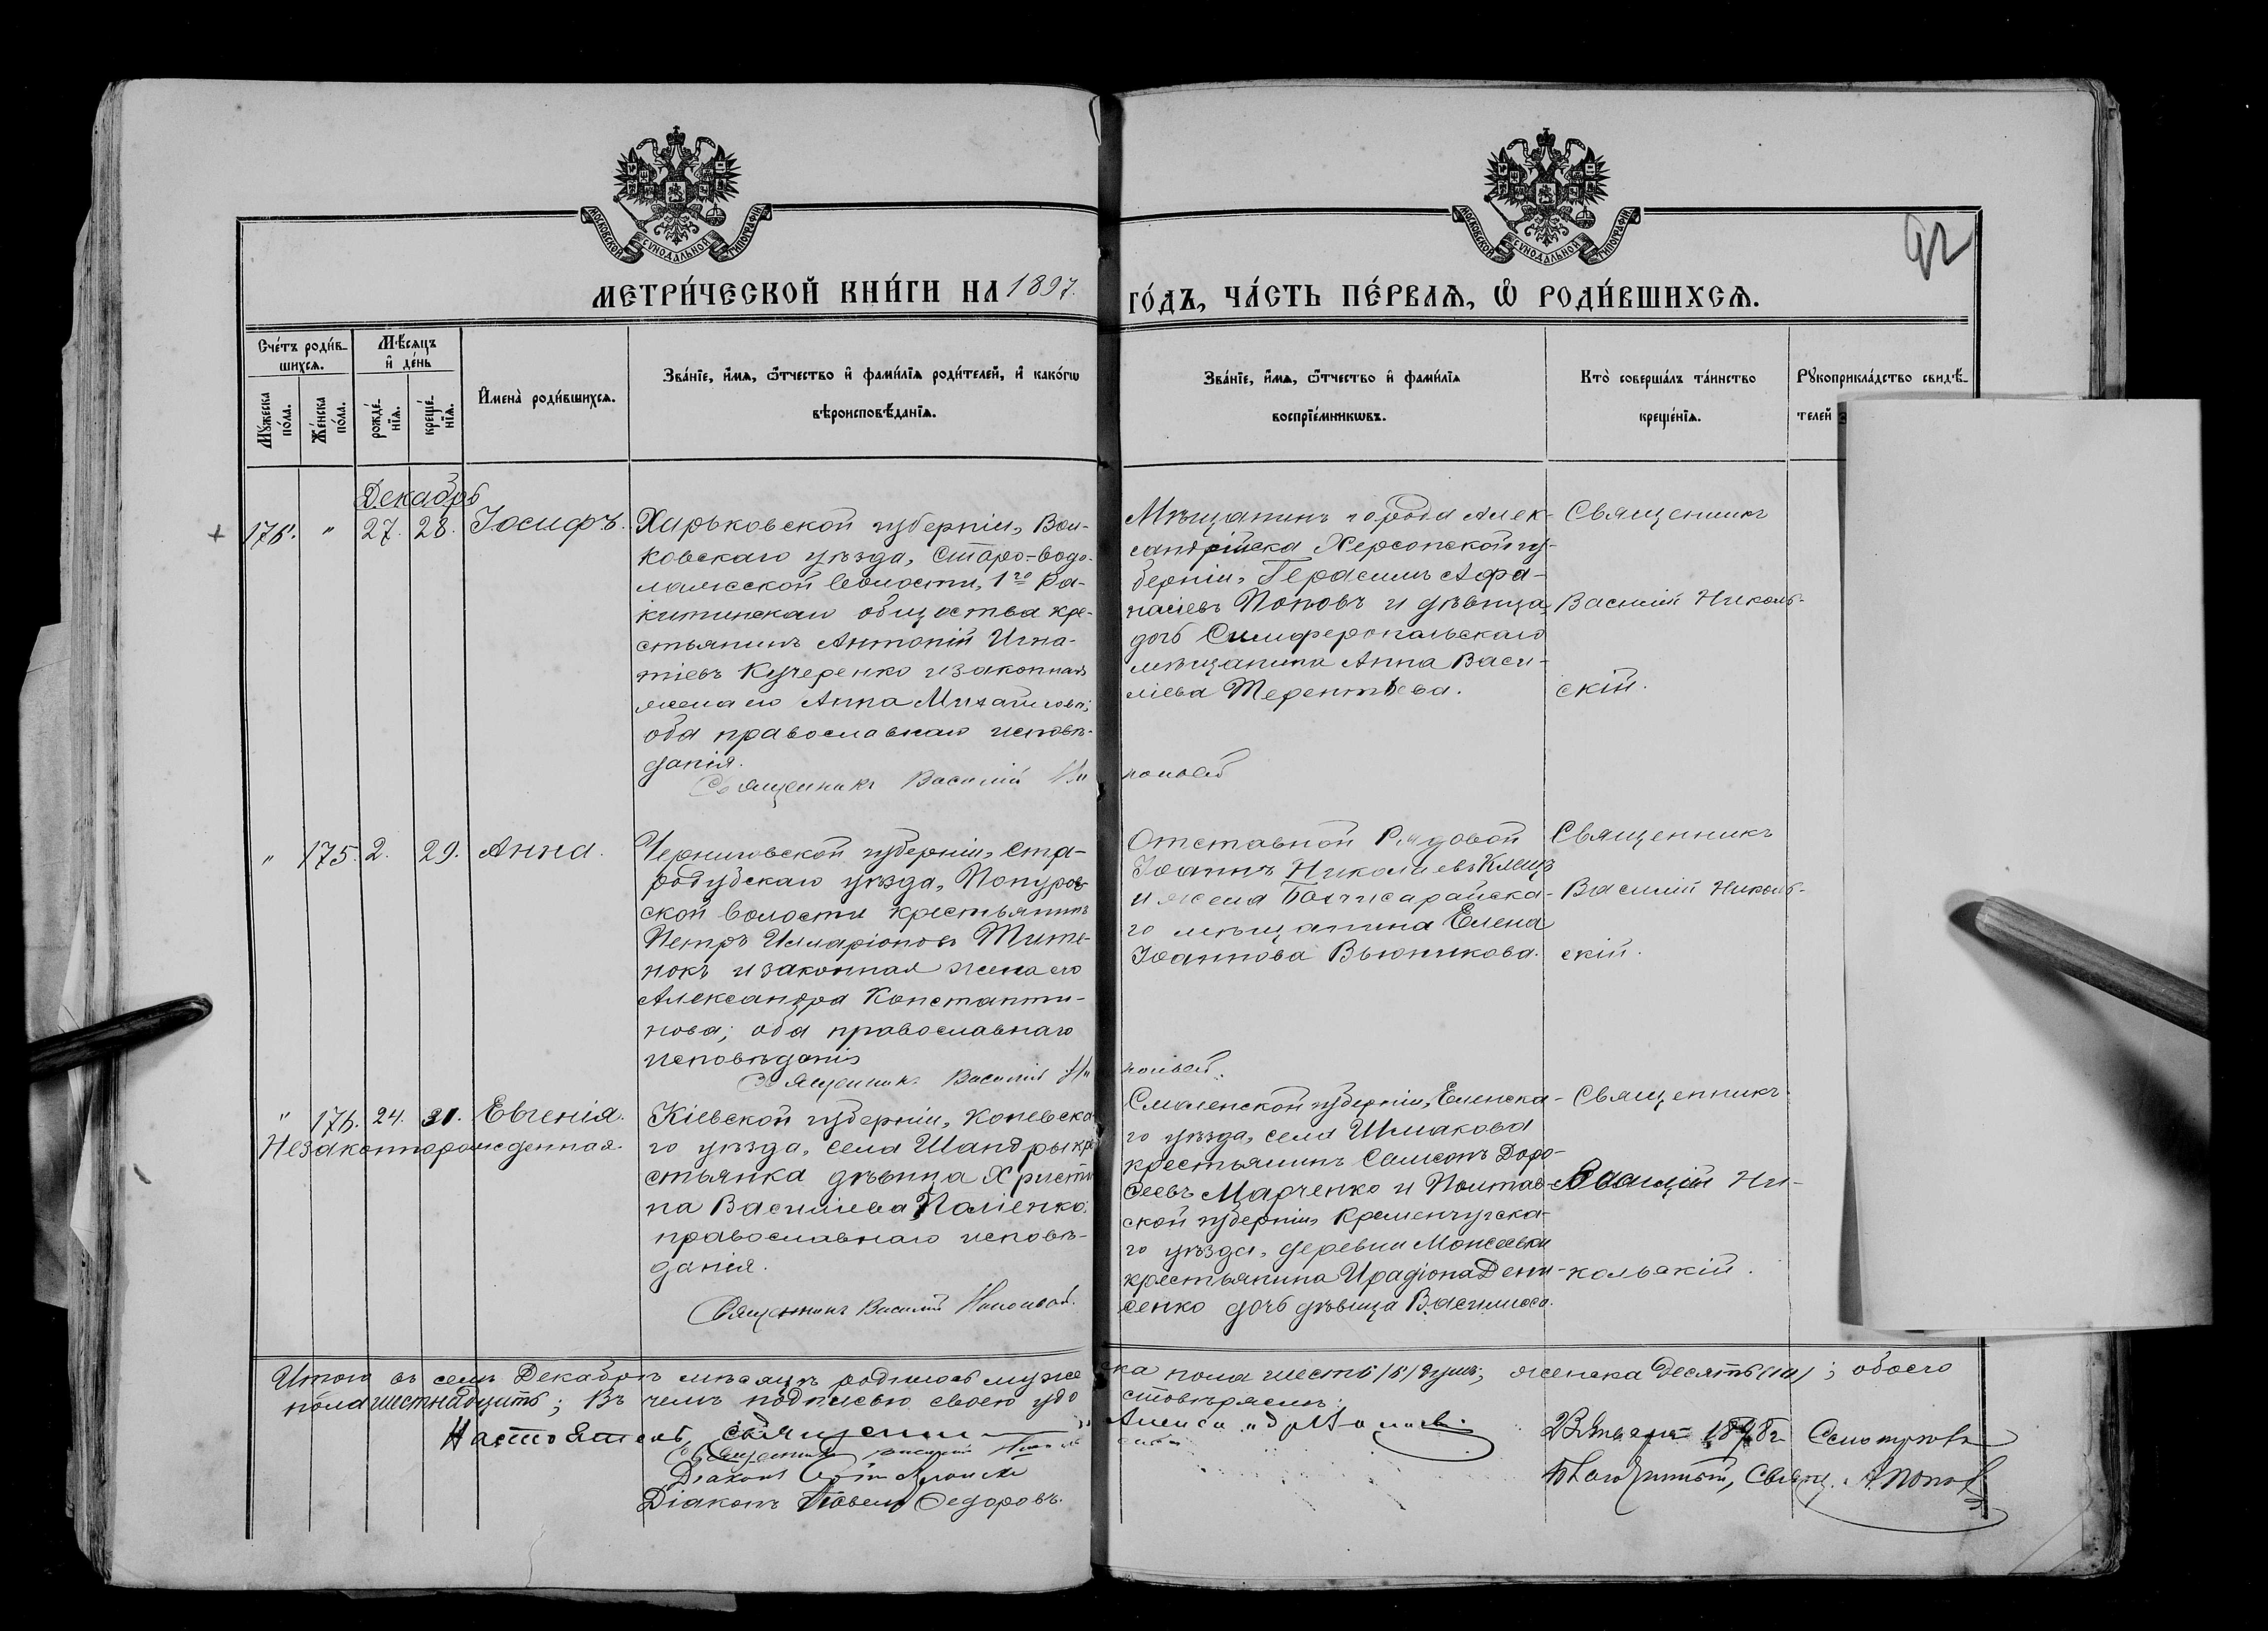 МОСКОВСКОЙ СѴНОДАЛЬНОЙ ТИПОГРАФІИ
МОСКОВСКОЙ СѴНОДАЛЬНОЙ ТИПОГРАФІИ
92
МЕТРИ́ЧЕСКОЙ КНИ́ГИ НА 1897.
ГО́ДЪ, ЧА́СТЬ ПЕ́РВАЯ, Ѡ҆ РОДИ́ВШИХСЯ.
Сче́тъ роди́в-
шихся.
Мѣ́сяцъ
и҆ де́нь
Мꙋ́жеска по́ла.
Же́нска по́ла.
рожде́-
нїя.
креще́-
нїя.
И҆мена̀ роди́вшихся.
Зва́нїе, и҆́мя, ѻ҆́тчество и҆ фами́лїя роди́телей, и҆ како́гѡ
вѣроисповѣ́данїя.
Зва́нїе, и҆́мя, ѻ҆́тчество и҆ фами́лїя
воспрїе́мникѡвъ.
Кто̀ соверша́лъ та́инство
креще́нїя.
Рꙋкоприкла́дство свидѣ́-
телей
Декабрь
" 27. 28. Іосифъ.
Харьковской губерніи, Вал-
ковскаго уѣзда, Старо-водо-
лажсской волости, 1го Ра-
китинскаго общества кре-
стьянинъ Антоній Игна-
тіевъ Кучеренко и законная
жена его Анна Михайлова;
оба православнаго исповѣ-
данія.
Священникъ Василій
Мѣщанинъ города Алек-
сандрійска Херсонской гу-
берніи, Герасимъ Афа-
насіевъ Поповъ и дѣвица,
дочь Симферопольскаго
мѣщанина Анна Васи-
ліева Терентьева.
Священникъ
Василій Николь-
скій.
" 175. 2. 29. Анна.
Черниговской губерніи, Ста-
родубскаго уѣзда, Понуров-
ской волости крестьянинъ
Петръ Илларіоновъ Тите-
нокъ и законная жена его
Александра Константи-
нова; оба православнаго
исповѣданія
Священникъ Василій
Отставной Рядовой
Іоаннъ Николаевъ Клещъ
и жена Бахчисарайска-
го мѣщанина Елена
Іоаннова Вьюникова.
Священникъ
Василій Николь-
скій.
" 176. 24. 31. Евгенія.
Незаконнорожденная.
Кіевской губерніи, Каневска-
го уѣзда, села Шандры кре-
стьянка дѣвица Христи-
на Василіева Паліенко,
православнаго исповѣ-
данія.
Священникъ Василій
Смоленской губерніи, Еленска-
го уѣзда, села Шмакова
крестьянинъ Самсонъ Доро-
ѳеевъ Марченко и Полтав-
ской губерніи, Кременчугска-
го уѣзда, деревни Моисеевки
крестьянина Ирадіона Дени-
сенко дочь дѣвица Василиса.
Священникъ
Василій Ни-
кольскій.
Итого въ семъ Декабрѣ мѣсяцѣ родилось муже
ска пола шесть (6) душъ; женска десять (10); обоего
пола шестнадцать; Въ чемъ подписью своею удо
стовѣряемъ:
Настоятель священникъ
Священникъ Василій
Діаконъ
Діаконъ Павелъ Ѳедоровъ.
Января 1898 г. Смотрѣлъ
Благочинный, Свящ. А. Поповъ